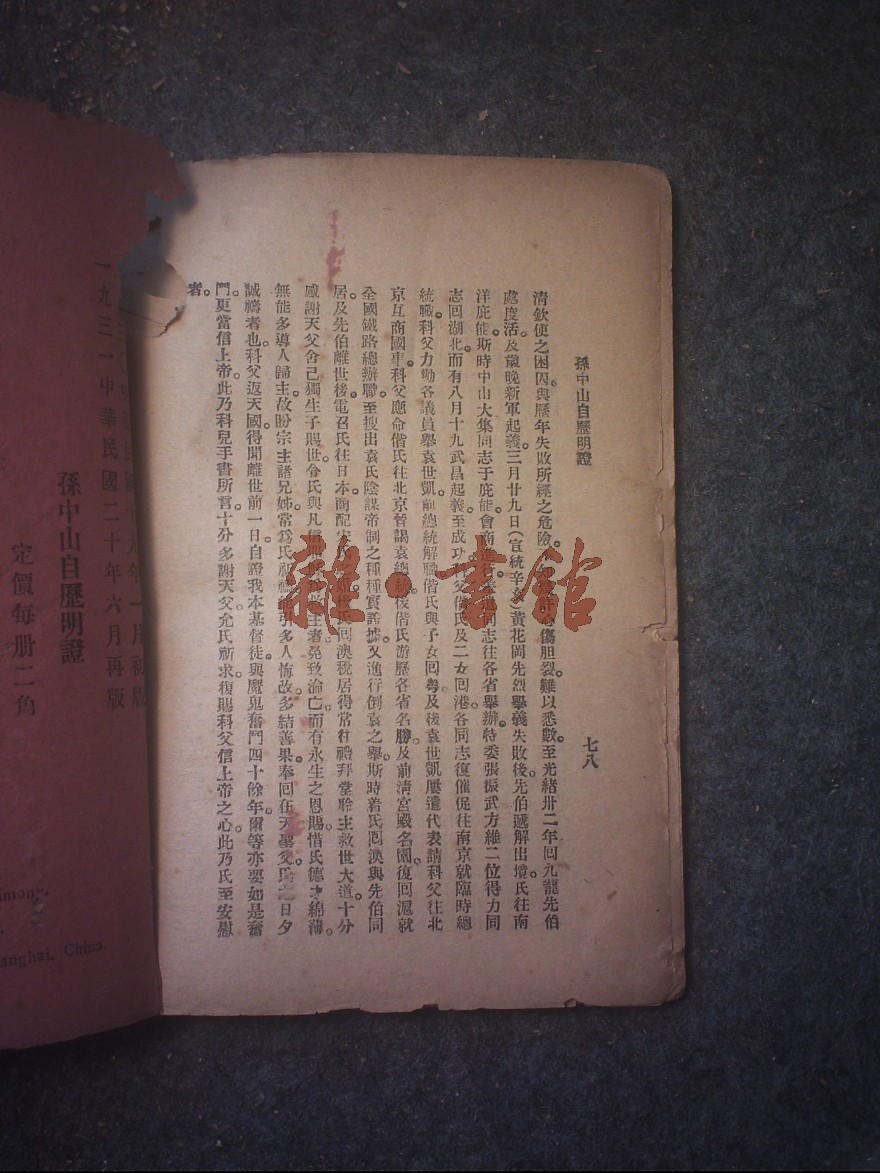 孫中山自歷明證
七八
清欽使之困囚與歷年失敗所經之危險心傷胆裂難以悉數。至光緒卅二年回九龍先伯
處度活。及歲晚新軍起義三月廿九日(宣統辛亥)黃花岡先烈舉義失敗後先伯遞解出境。氏往南
洋庇能。斯時中山大集同志于庇能會商進行同志往各省舉辦。特委張振武方維二位得力同
志回湖北。而有八月十九武昌起義。至成功科父偕氏及二女回港。各同志復催促往南京就臨時總
統職。科父力勸各議員舉袁世凱前總統解職偕氏與子女回粵及後袁世凱屢遣代表請科父往北
京互商國事。科父應命偕氏往北京晉謁袁總統後偕氏游歷各省名勝。及前清宮殿名園。復回滬就
全國鐵路總辦職。至搜出袁氏陰謀帝制之種種實據。又進行倒袁之舉。斯時着氏回澳與先伯同
居。及先伯離世後。電召氏往日本商配宋氏回澳稅居得常往禮拜堂聆主救世大道。十分
感謝天父舍己獨生子賜世。令氏與凡信者免致淪亡。而有永生之恩賜。惜氏德才綿薄。
無能多導人歸主。故盼宗主諸兄姊常爲氏祈禱能引多人悔改。多結善果。奉回在天聖父。氏之日夕
誠禱者也。科父返天國。得聞離世前一日。自證我本基督徒。與魔鬼奮鬥四十餘年。爾等亦要如是奮
鬥。更當信上帝。此乃科兒手書所言。十分多謝天父。允氏祈求。復賜科父信上帝之心。此乃氏至安慰
者。
雜·書館
一九三一中華民國二十年六月再版
年一月初版
孫中山自歷明證
定價每册二角
anghai, China.